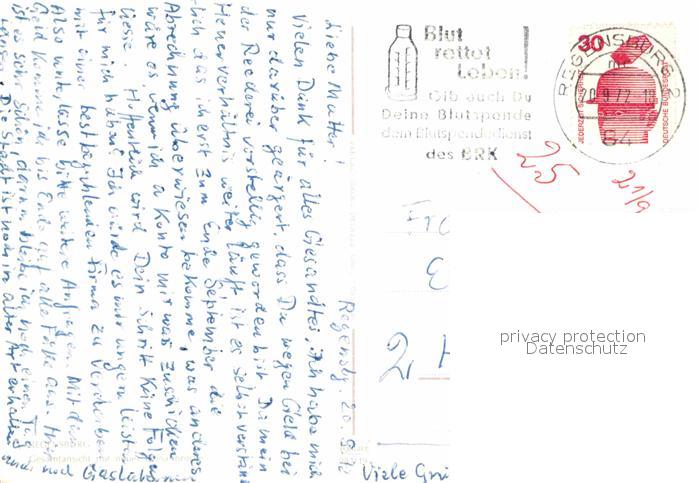 Regensbg. 20.9.72
Liebe Mutter!
Vielen Dank für alles Gesandte. Ich habe mich
nur darüber geärgert, dass Du wegen Geld bei
der Reederei vorstellig geworden bist. Da mein
Heuerverhältnis weiter läuft, ist es selbstverständ
lich das ich erst zum Ende September die
Abrechnung überwiesen bekomme, was anderes
wäre es wenn ich a Konto mir was zuschicken
liesse. Hoffentlich wird Dein Schritt keine Folgen
für mich haben. Ich würde es mir ungern leisten
mit einer bestbezahlenden Firma zu verderben
Also unterlasse bitte weitere Anfragen. Mit dem
Geld komme ich bis Ende auf alle Fälle aus. Hier
ist es sehr schön, darum bleibe ich noch einen Tag
Die Stadt ist noch in alter Art erhalten
und noch Gaslaternen
Viele Grü
Blut
rettet
Leben!
Gib auch Du
Deine Blutspende
dem Blutspendedienst
des BRK
REGENSBURG 2
20.9.72
84
30
JEDERZEIT SICHERHEIT
DEUTSCHE BUNDESPOST
25
21/9
Fr
2, H
privacy protection
Datenschutz